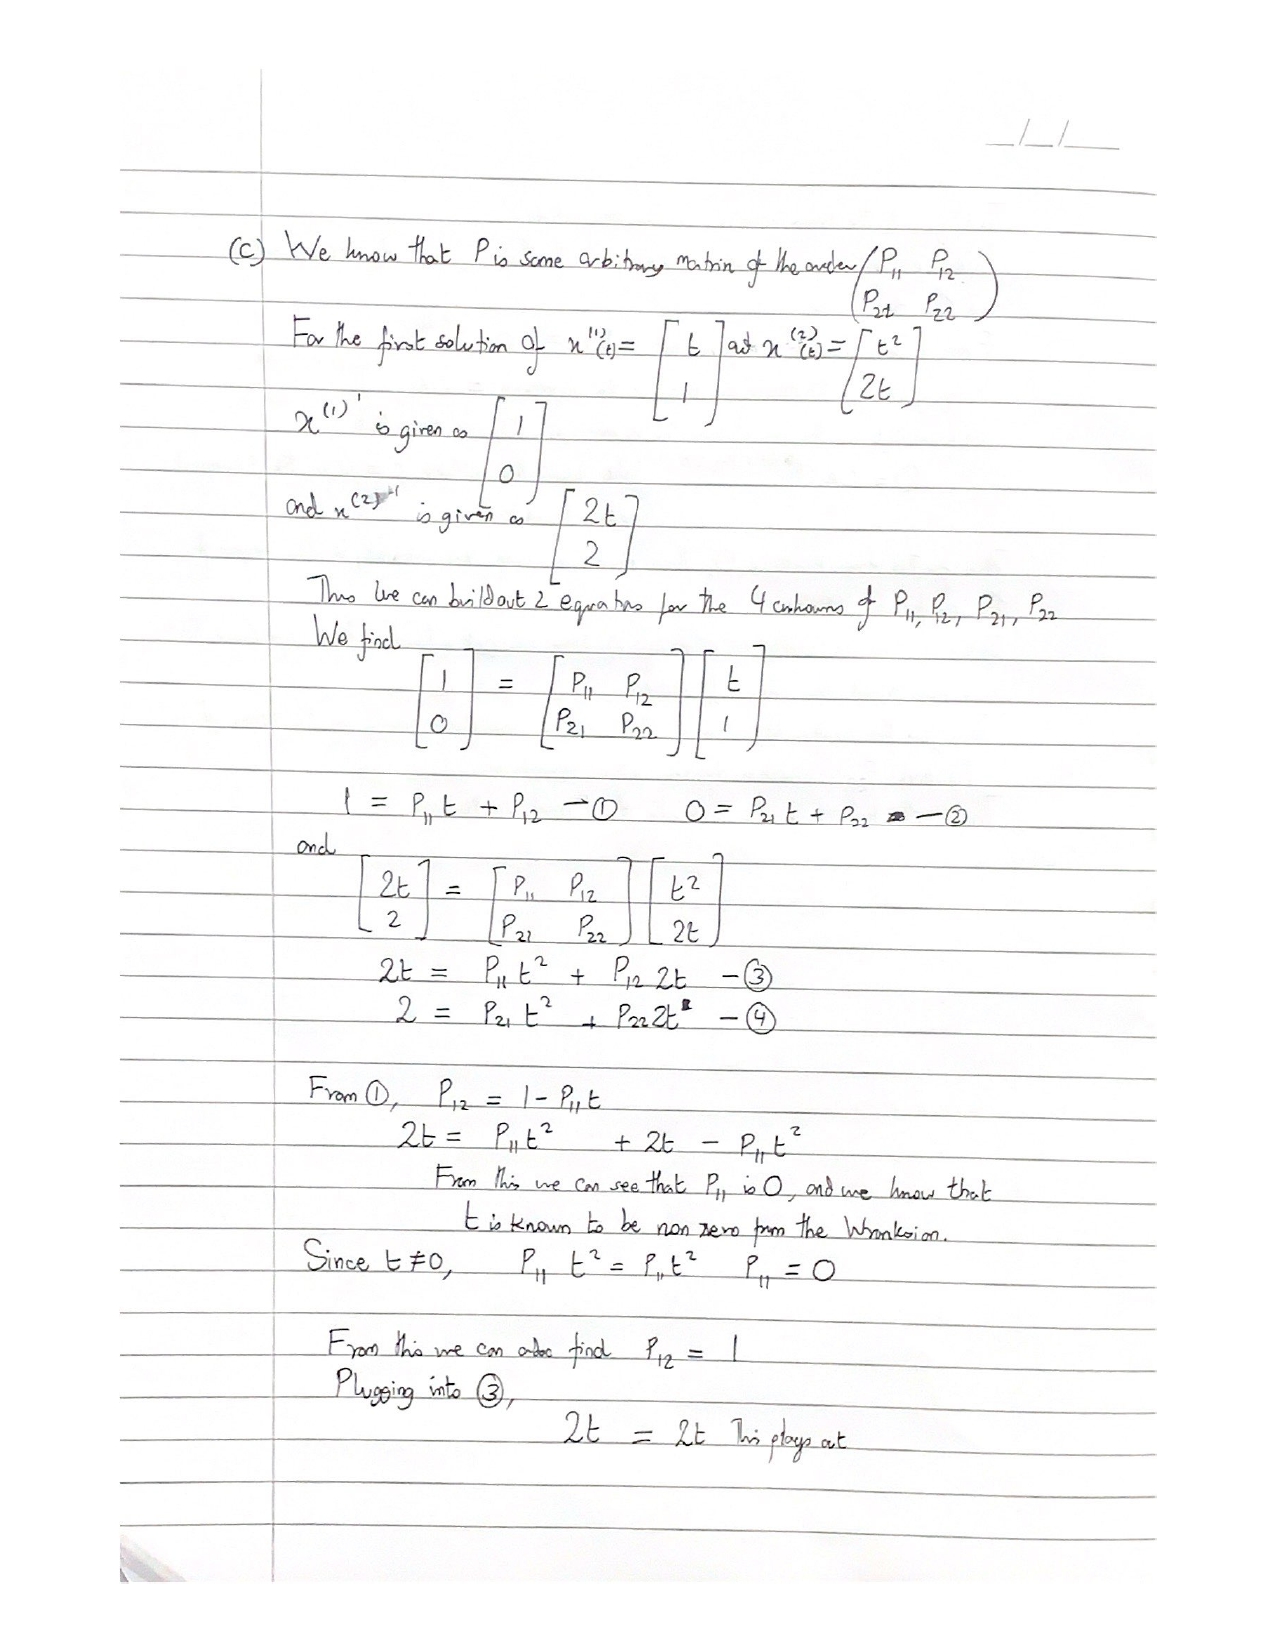 __/__/____
(C) We know that P is some arbitrary matrix of the order (P₁₁ P₁₂
P₂₁ P₂₂)
For the first solution of x⁽¹⁾(t) = [t 1] and x⁽²⁾(t) = [t² 2t]
x⁽¹⁾' is given as [1 0]
and x⁽²⁾' is given as [2t 2]
Thus we can build out 2 equations for the 4 unknowns of P₁₁, P₁₂, P₂₁, P₂₂
We find
[1 0] = [P₁₁ P₁₂ P₂₁ P₂₂] [t 1]
1 = P₁₁t + P₁₂ — ① 0 = P₂₁t + P₂₂ — ②
and
[2t 2] = [P₁₁ P₁₂ P₂₁ P₂₂] [t² 2t]
2t = P₁₁t² + P₁₂ 2t — ③
2 = P₂₁t² + P₂₂ 2t — ④
From ①, P₁₂ = 1 - P₁₁t
2t = P₁₁t² + 2t - P₁₁t²
From this we can see that P₁₁ is 0, and we know that
t is known to be non zero from the Wronksion.
Since t ≠ 0, P₁₁ t² = P₁₁t² P₁₁ = 0
From this we can also find P₁₂ = 1
Plugging into ③,
2t = 2t This plays out